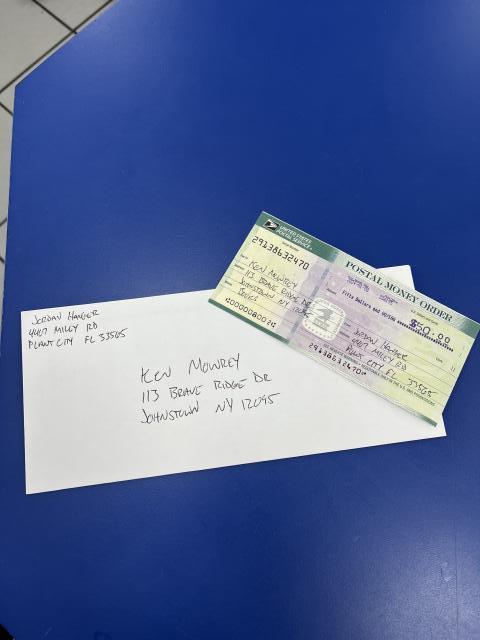 JORDAN HANGER
4467 MILEY RD
PLANT CITY FL 33565
KEN MOWREY
113 BRAVE RIDGE DR
JOHNSTOWN NY 12095
UNITED STATES
POSTAL SERVICE
29138632470
KEN MOWREY
113 BRAVE RIDGE DR
JOHNSTOWN NY
POSTAL MONEY ORDER
Fifty Dollars and 00/100
$50.00
JORDAN HANGER
4467 MILEY RD
PLANT CITY FL 33565
29138632470